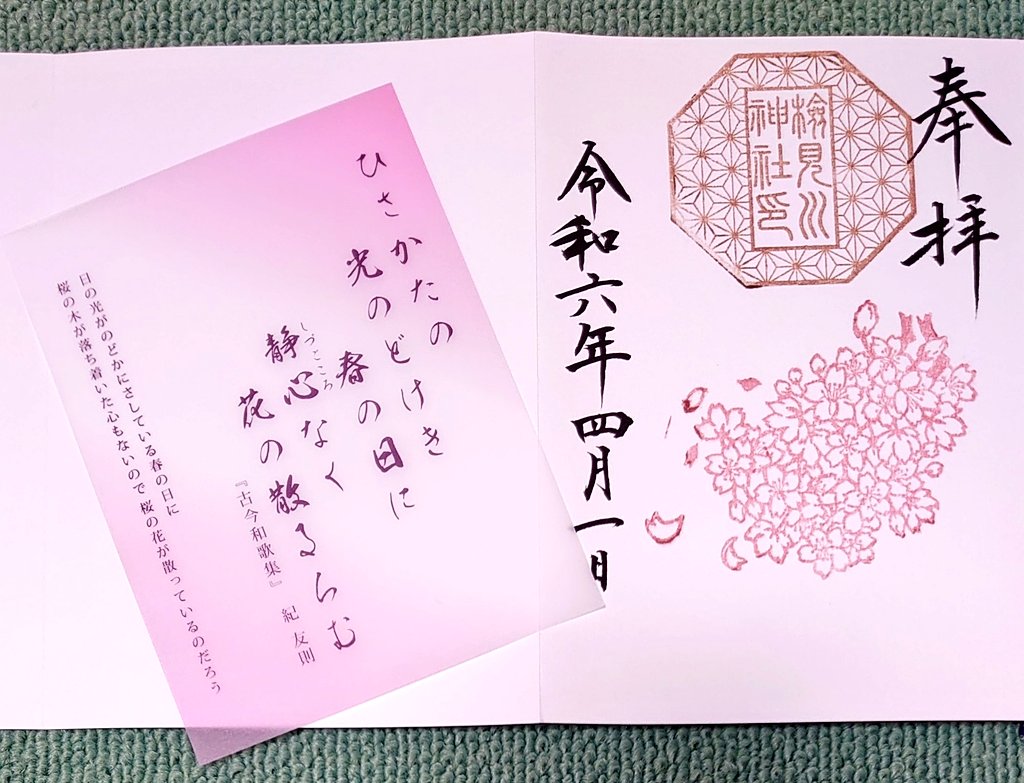 奉拝
検見川
神社印
令和六年四月一日
ひさかたの
光のどけき
春の日に
静心なく
しづこころ
花の散るらむ
『古今和歌集』 紀友則
日の光がのどかにさしている春の日に
桜の木が落ち着いた心もないので桜の花が散っているのだろう